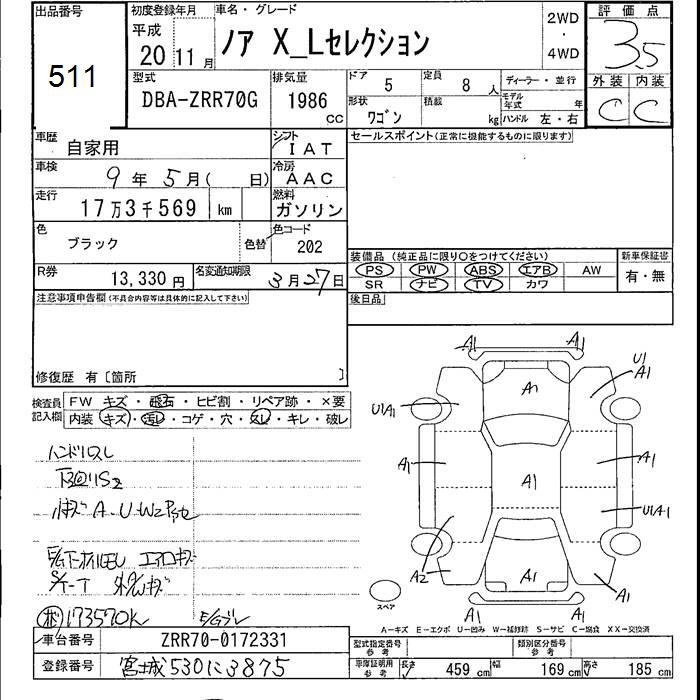 出品番号
511
初度登録年月
平成
20 11 月
車名・グレード
ノア X_Lセレクション
2WD
・
4WD
評価点
3.5
外装 内装
C C
型式
DBA-ZRR70G
排気量
1986
cc
ドア
5
定員
8 人
ディーラー・並行
形状
ワゴン
積載
kg
モデル年式 年
ハンドル 左・右
車歴
自家用
シフト
I AT
車検
9 年 5 月( 日)
冷房
AAC
走行
17万3千569 km
燃料
ガソリン
色
ブラック
色替
色コード
202
R券
13,330 円
名変通知期限
3月27日
セールスポイント(正常に機能するものに限ります)
装備品 (純正品に限り○をつけてください)
新車保証書
PS PW ABS エアB AW
SR ナビ TV カワ
有・無
後日品
注意事項申告欄(不具合内容等は具体的に記入して下さい)
修復歴 有〔箇所 〕
検査員
記入欄
FW キズ・飛石・ヒビ割・リペア跡・×要
内装 キズ・汚レ・コゲ・穴・スレ・キレ・破レ
ハンドリスレ
小キズ A-U-W2
外/Wキズ
173570K
A1 A1
U1
A1
A1
U1A1
A1
A1
A1
U1A1
A2
A1
A1
A1 A1
スペア
A-キズ E-エクボ U-凹み W-補修跡 S-サビ C-腐食 XX-交換済
車台番号
ZRR70-0172331
登録番号
宮城530に3875
型式指定番号
参考
類別区分番号
参考
車庫証明用
参考
長さ 459 cm 幅 169 cm 高さ 185 cm